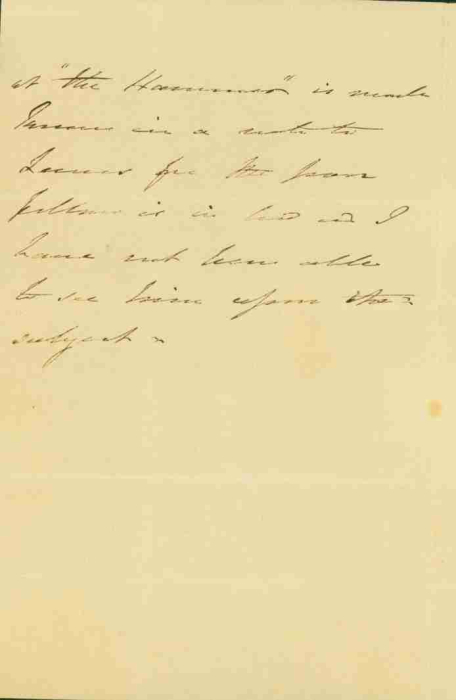 at "the Hammer" is made
known in a note to
for the poor
fellow is in bed and I
have not been able
to see him upon the
subject -